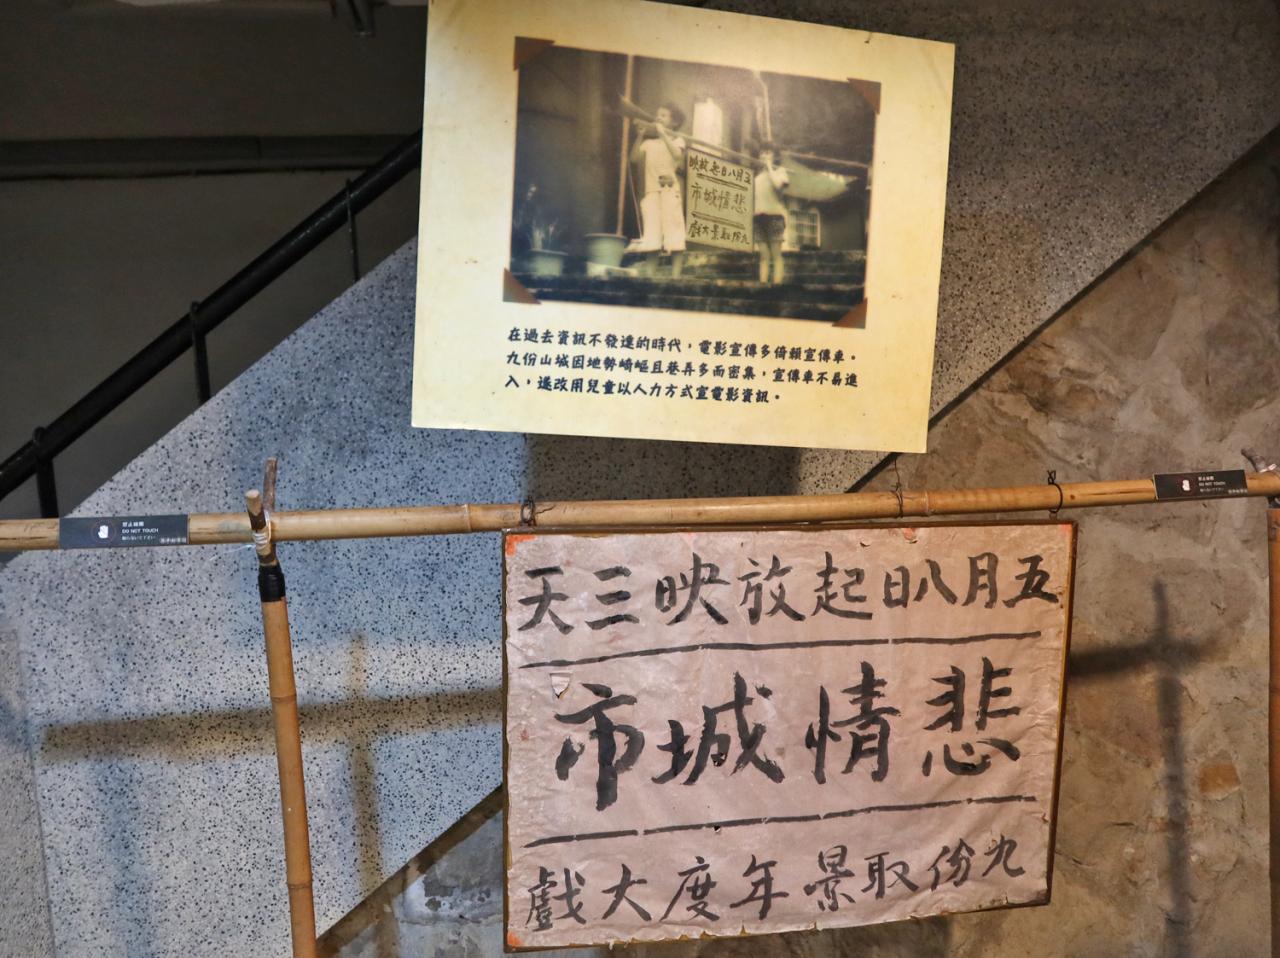 五月八日起放映
悲情城市
九份取景大戲
在過去資訊不發達的時代，電影宣傳多倚賴宣傳車。
九份山城因地勢崎嶇且巷弄多而密集，宣傳車不易進
入，遂改用兒童以人力方式宣電影資訊。
DO NOT TOUCH
DO NOT TOUCH
五月八日起放映三天
悲情城市
九份取景年度大戲